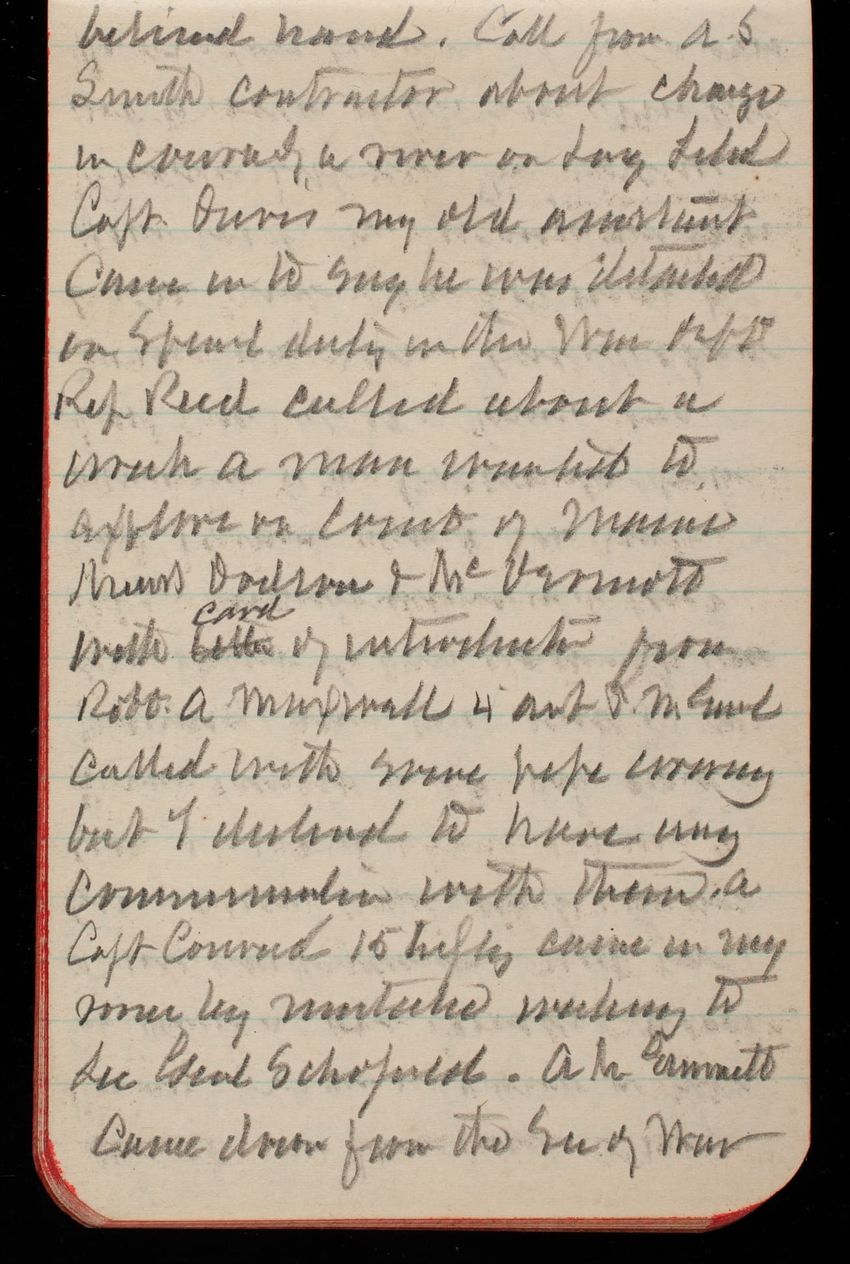 behind hand. Call from A S
Smith contractor about change
in
Capt. Davis my old assistant
Came in to say he was detached
on Special duty in the War Dept
Rep Reed called about a
wreck a man wanted to
explore on Coast of Maine
Dodson & McDermott
with card letter of introduction from
Robt. A Maxwell
called with some pipe
but I declined to have any
communication with them. A
Capt Conrad 15 Infty came in my
room by mistake wishing to
see Genl Schofield. A Mr Emmett
Came down from the Sec of War